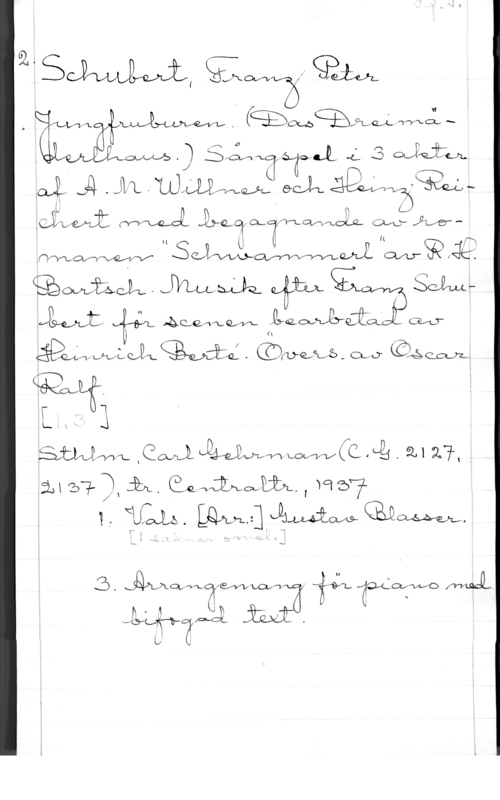 2. Schubert, Franz Peter
Jungfruburen. (Das Dreimä-
derlhaus.) Sångspel i 3 akter
af A. M. Willner och Heinz Rei-
chert med begagnande av ro-
manen "Schwammerl" av R. H.
Bartsch. Musik efter Franz Schu-
bert för scenen bearbetad av
Heinrich Berté. Övers. av Oscar
Ralf.
[1, 3]
Sthlm, Carl Gehrman (C. G. 2127,
2137), tr. Centraltr., 1937
1. Vals. [Arr.:] Gustav Blasser.
[1 saknar omsl.]
3. Arrangemang för piano med
bifogad text.